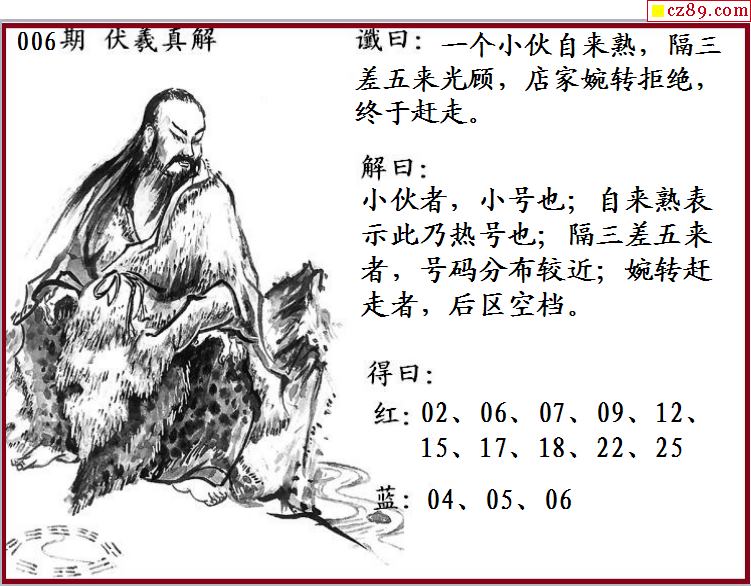 cz89.com
006期 伏羲真解
谶曰：一个小伙自来熟，隔三
差五来光顾，店家婉转拒绝，
终于赶走。
解曰：
小伙者，小号也；自来熟表
示此乃热号也；隔三差五来
者，号码分布较近；婉转赶
走者，后区空档。
得曰：
红：02、06、07、09、12、
15、17、18、22、25
蓝：04、05、06